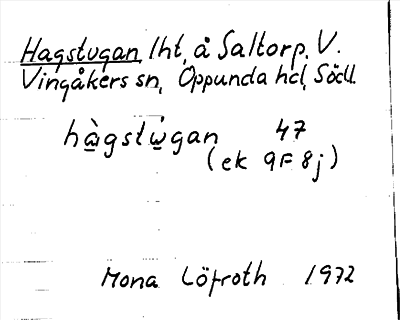 Hagstugan, lht, å Saltorp. V.
Vingåkers sn, Oppunda hd, Södl.
hàgstùgan 47
(ek 9F 8j)
Mona Löfroth 1972